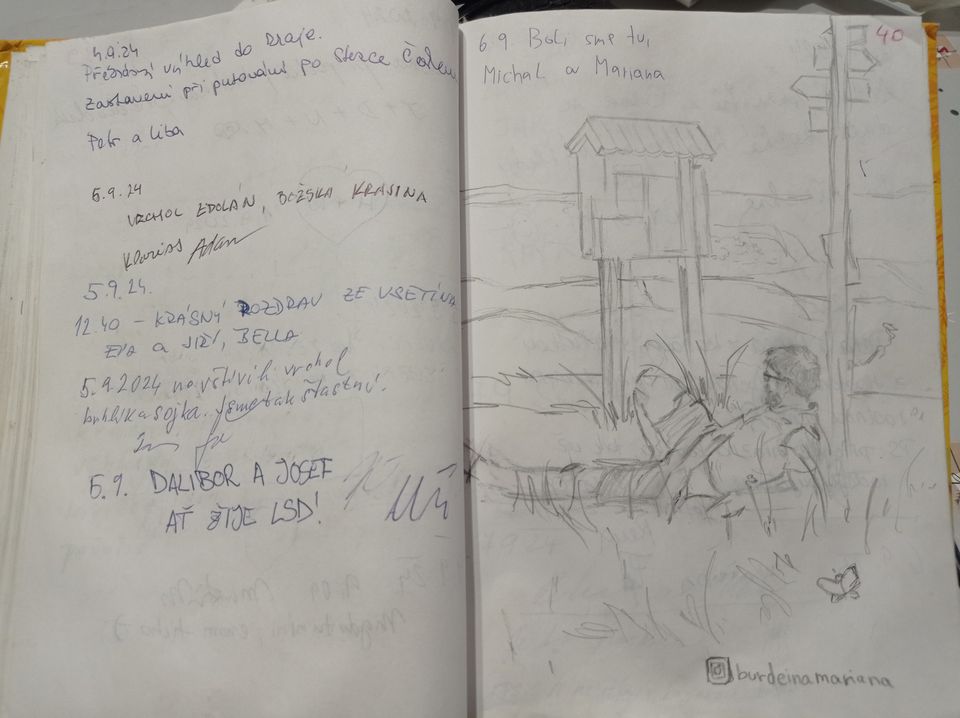 4.9.24
výhled do kraje.
zastavení při putování po stezce Českem
Petr a Liba
5.9.24
VRCHOL ZDOLÁN, BOŽSKÁ KRÁSINA
Adam
5.9.24.
12.40 – KRÁSNÝ POZDRAV ZE VSETÍNA
EVA a JIŘÍ, BELLA
5.9.2024 navštívili vrchol
sojka. Jsme tak šťastní.
5.9. DALIBOR A JOSEF
AŤ ŽIJE LSD!
6.9. Boli sme tu,
Michal a Mariana
40
burdeinamariana